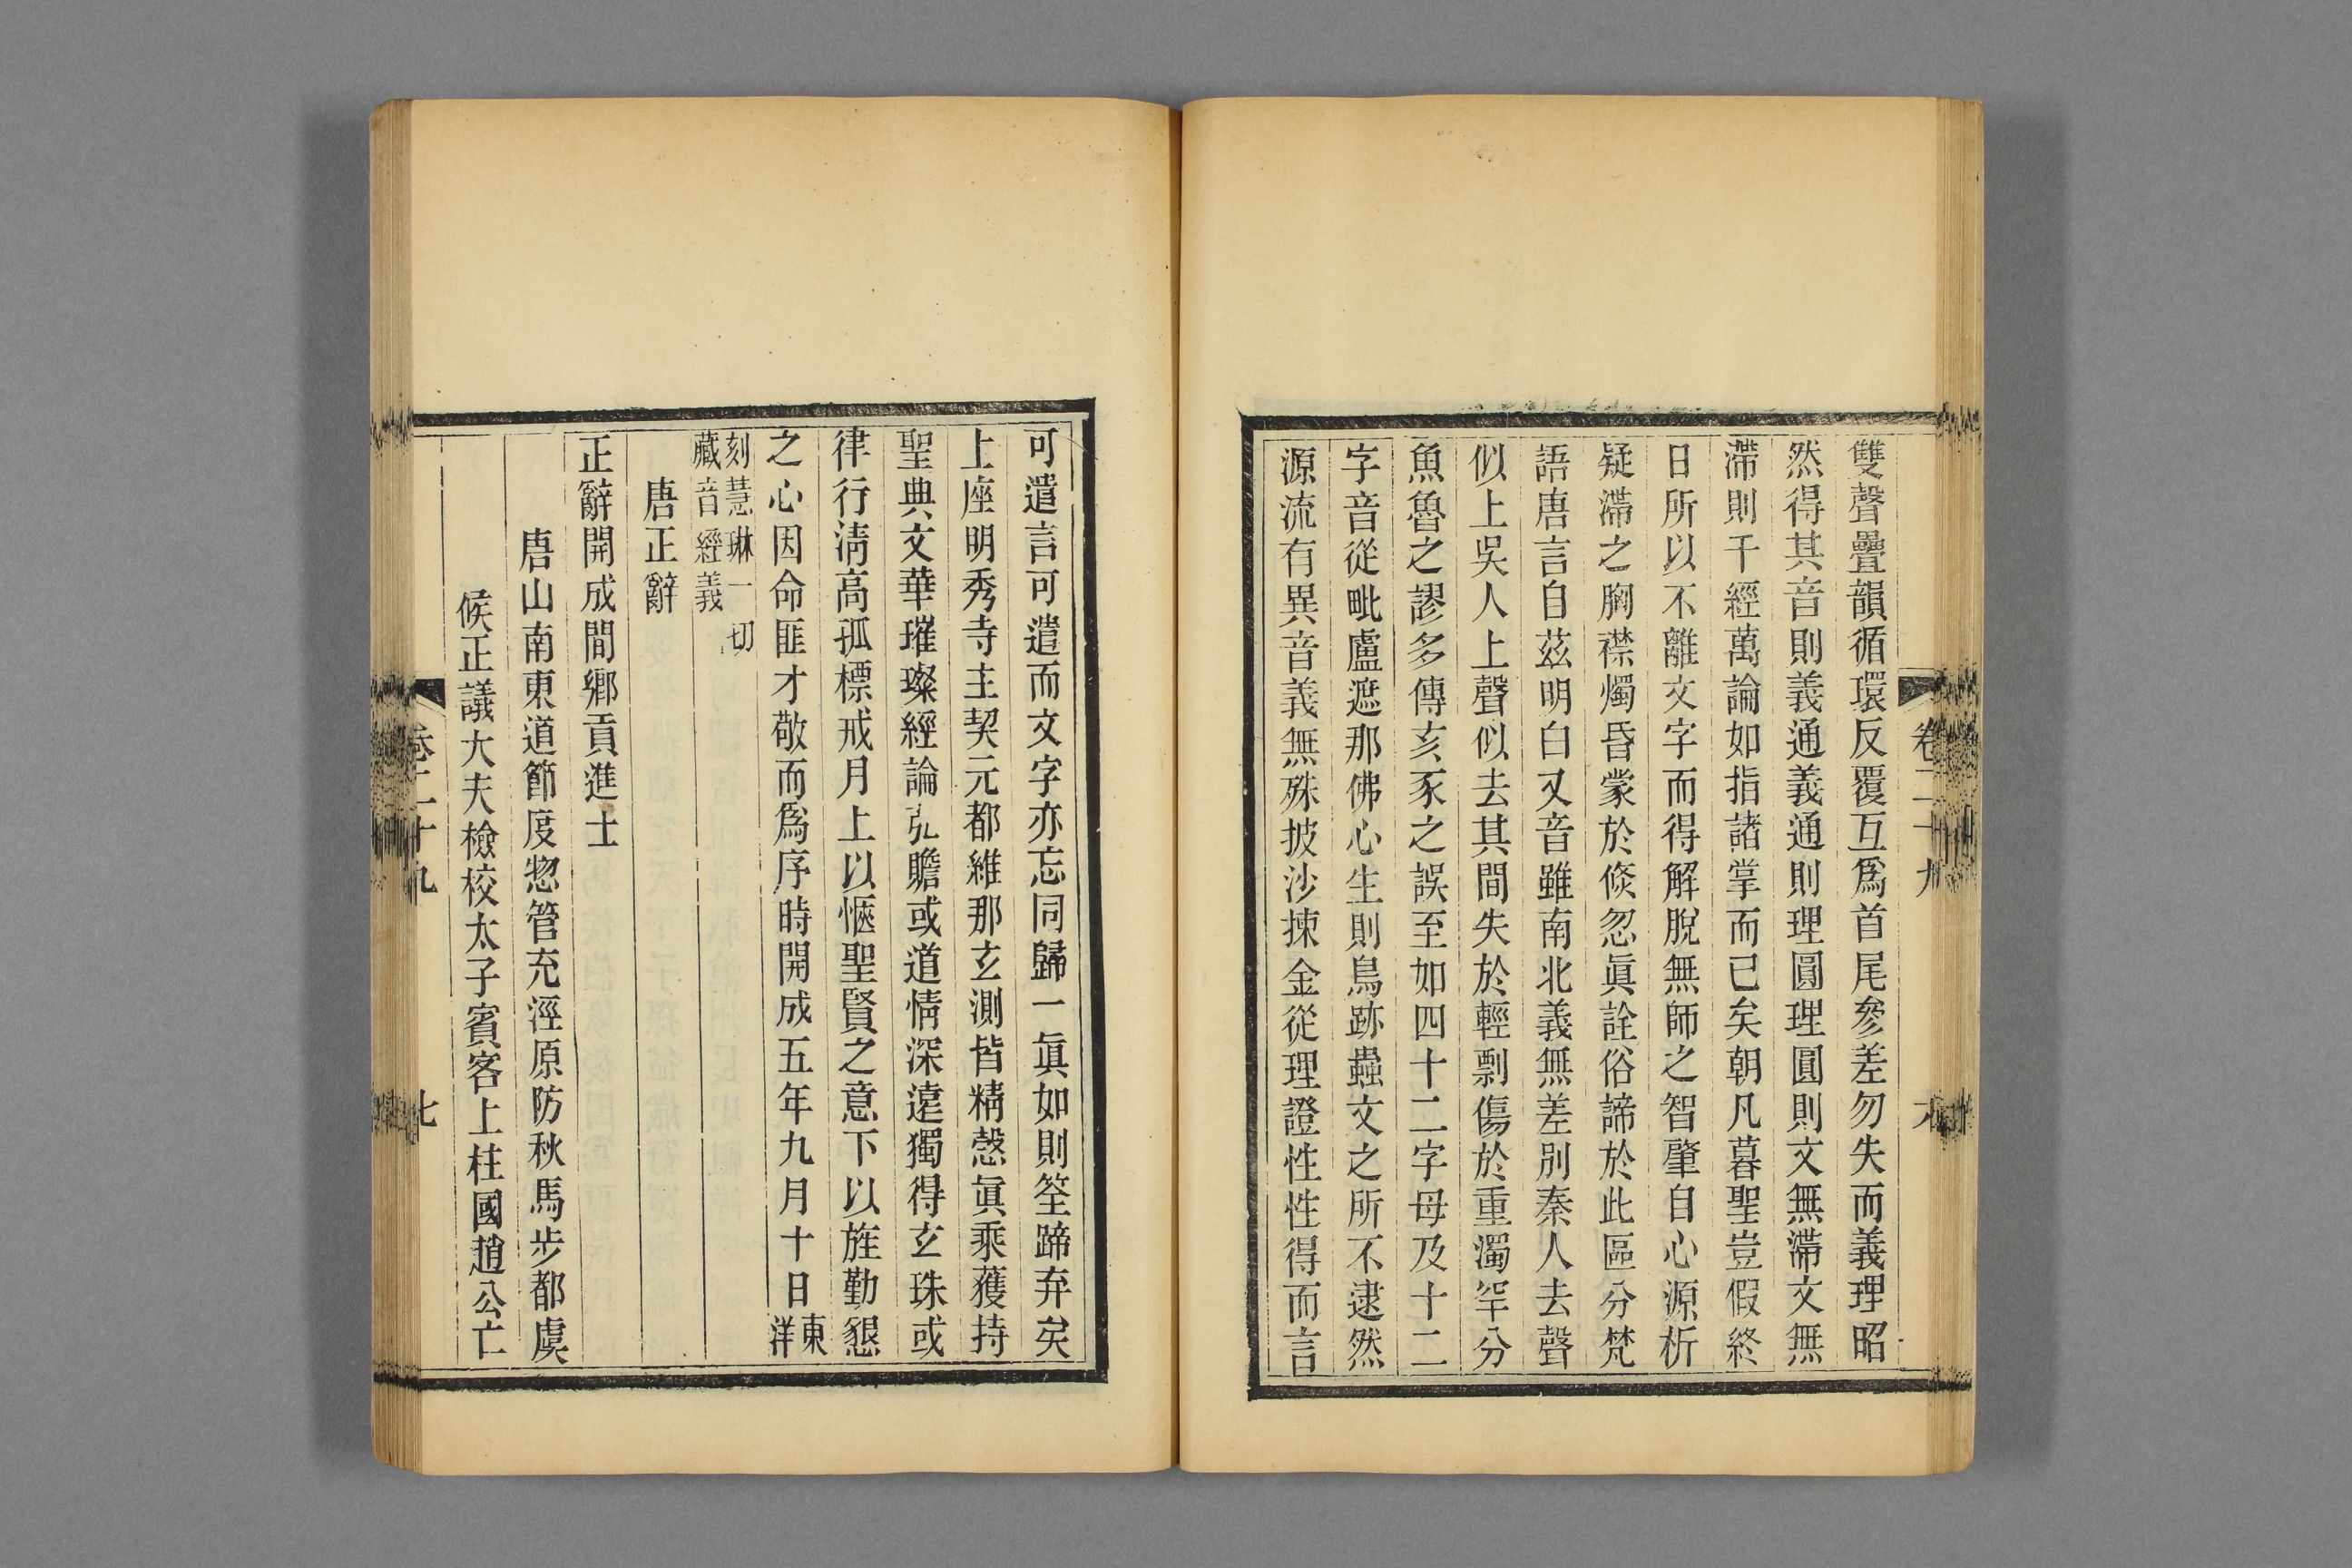 卷二十九
六
雙聲疊韻循環反覆互爲首尾參差勿失而義理昭
然得其音則義通義通則理圓理圓則文無滯文無
滯則千經萬論如指諸掌而已矣朝凡暮聖豈假終
日所以不離文字而得解脫無師之智肇自心源析
疑滯之胸襟燭昏蒙於倐忽眞詮俗諦於此區分梵
語唐言自茲明白又音雖南北義無差別秦人去聲
似上吳人上聲似去其間失於輕剽傷於重濁罕分
魚魯之謬多傳亥豕之誤至如四十二字母及十二
字音從毗盧遮那佛心生則鳥跡蟲文之所不逮然
源流有異音義無殊披沙揀金從理證性性得而言
可遣言可遣而文字亦忘同歸一眞如則筌蹄弃矣
上座明秀寺主契元都維那玄測皆精慤眞乘護持
聖典文華璀璨經論弘贍或道情深遠獨得玄珠或
律行淸高孤標戒月上以愜聖賢之意下以旌勤懇
之心因命匪才敬而爲序時開成五年九月十日東洋
刻慧琳一切
藏音經義
唐正辭
正辭開成間鄉貢進士
唐山南東道節度惣管充涇原防秋馬步都虞
候正議大夫檢校太子賓客上柱國趙公亡
卷二十九
七